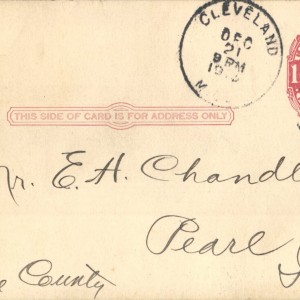 CLEVELAND
DEC
21
9 PM
THIS SIDE OF CARD IS FOR ADDRESS ONLY
Mr. E. H. Chandl
Pearl
County